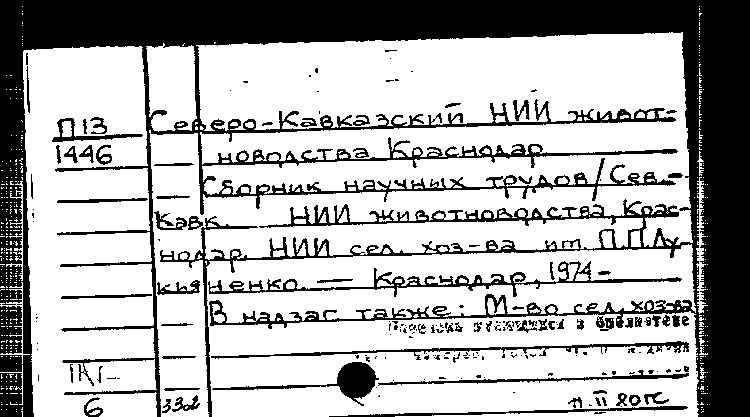 П13
1446
Северо-Кавказский НИИ живот-
новодства. Краснодар
Сборник научных трудов / Сев.-
Кавк. НИИ животноводства, Крас-
нодар. НИИ сел. хоз-ва им. П.П.Лу-
кьяненко. — Краснодар, 1974-
В надзаг. также: М-во сел. хоз-ва
в библиотеке
6